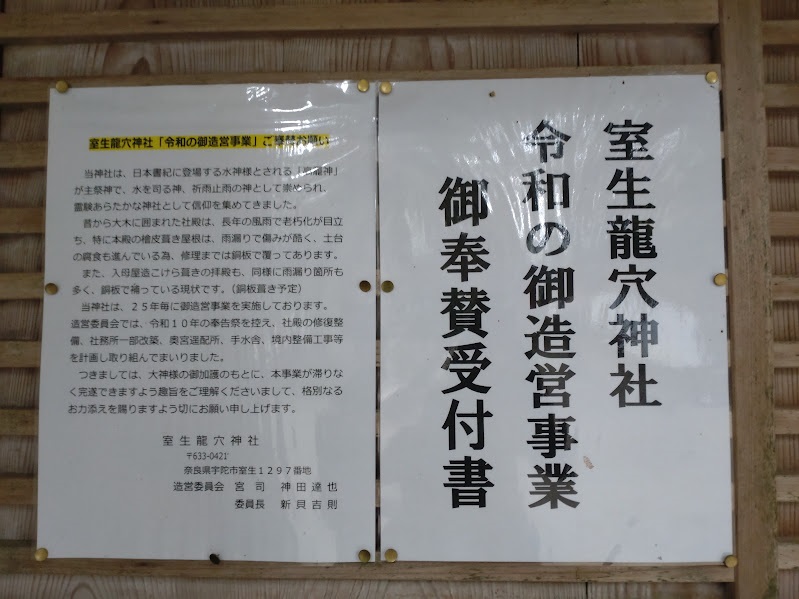 室生龍穴神社「令和の御造営事業」ご奉賛お願い
当神社は、日本書紀に登場する水神様とされる「高龗神」
が主祭神で、水を司る神、祈雨止雨の神として崇められ、
霊験あらたかな神社として信仰を集めてきました。
昔から大木に囲まれた社殿は、長年の風雨で老朽化が目立
ち、特に本殿の檜皮葺き屋根は、雨漏りで傷みが酷く、土台
の腐食も進んでいる為、修理までは銅板で覆ってあります。
また、入母屋造こけら葺きの拝殿も、同様に雨漏り箇所も
多く、銅板で補っている現状です。（銅板葺き予定）
当神社は、２５年毎に御造営事業を実施しております。
造営委員会では、令和１０年の奉告祭を控え、社殿の修復整
備、社務所一部改築、奥宮遥配所、手水舎、境内整備工事等
を計画し取り組んでまいりました。
つきましては、大神様の御加護のもとに、本事業が滞りな
く完遂できますよう趣旨をご理解くださいまして、格別なる
お力添えを賜りますよう切にお願い申し上げます。
室生龍穴神社
〒633-0421
奈良県宇陀市室生１２９７番地
造営委員会 宮司 神田達也
委員長 新貝吉則
室生龍穴神社
令和の御造営事業
御奉賛受付書